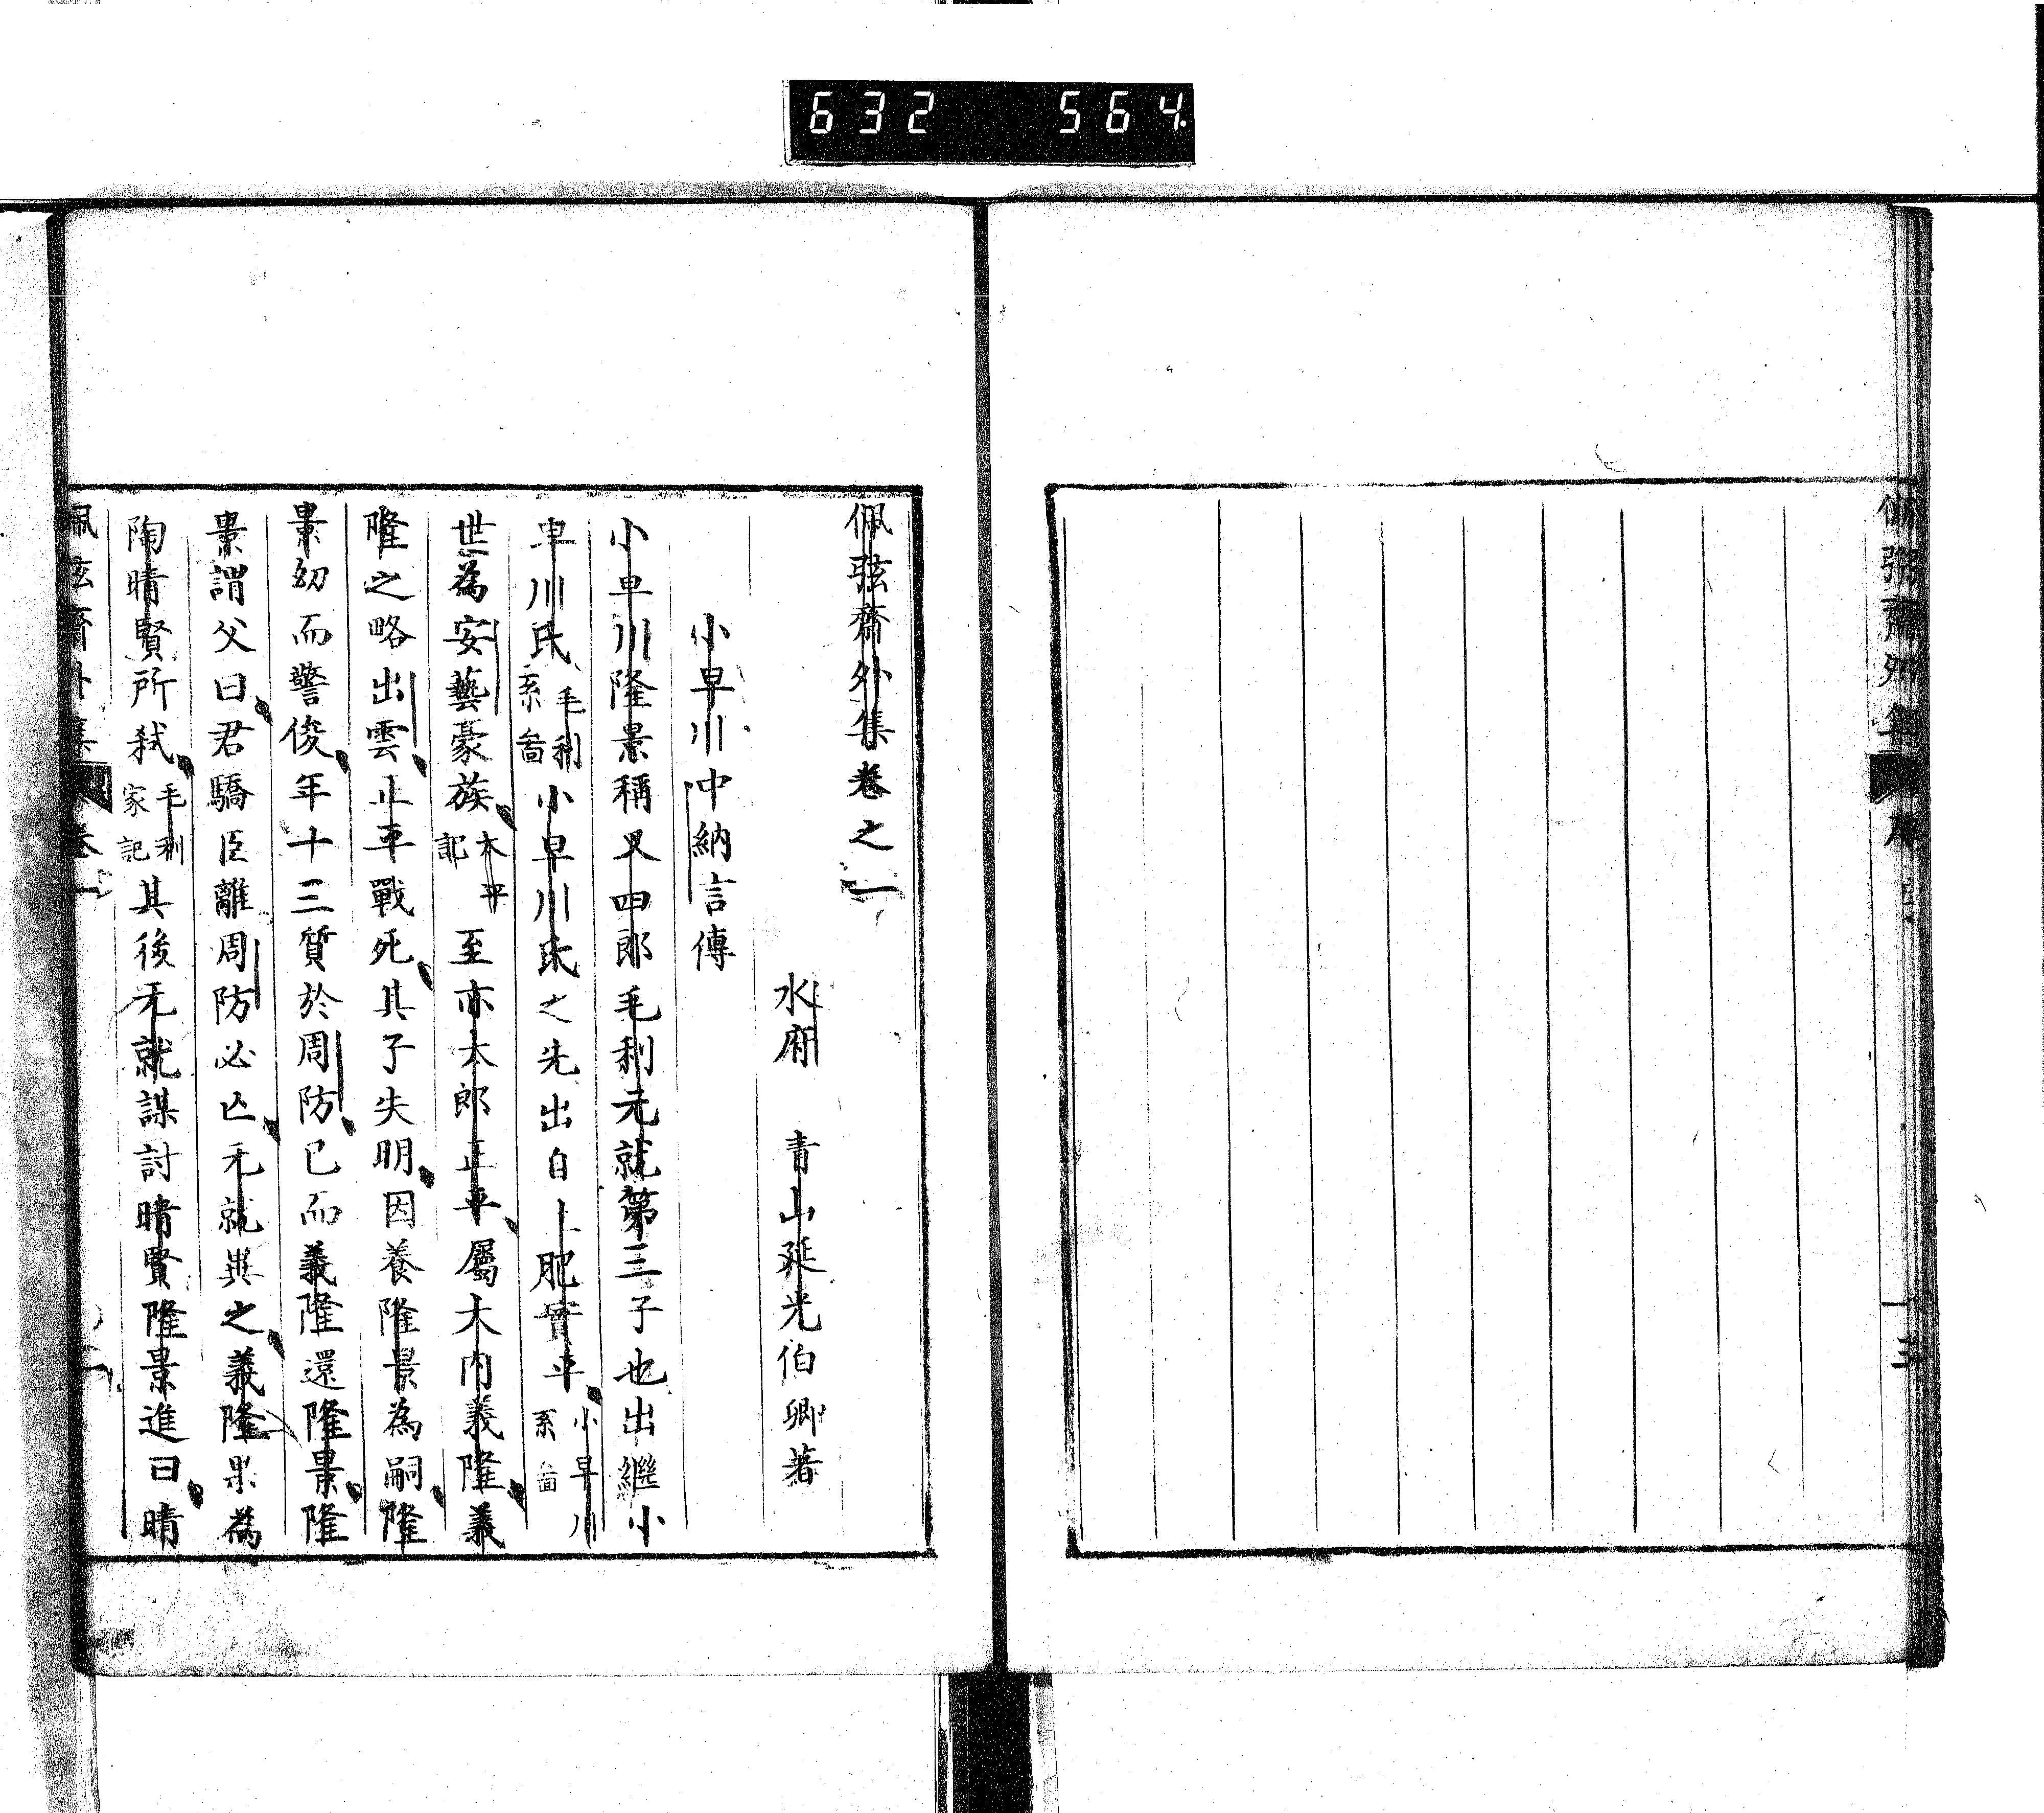 632 564
佩弦齋外集
一三
佩弦齋外集卷之一
水府 青山延光伯卿著
小早川中納言傳
小早川隆景稱又四郎毛利元就第三子也出繼小
早川氏毛利系啚小早川氏之先出自土肥實平小早川系啚
世為安藝豪族太平記至亦太郎正平屬大内義隆義
隆之略出雲正平戰死其子失明因養隆景為嗣隆
景幼而警俊年十三質於周防已而義隆還隆景隆
景謂父曰君驕臣離周防必亡元就異之義隆果為
陶晴賢所弑毛利家記其後元就謀討晴賢隆景進曰晴
佩弦齋外集 卷一 一